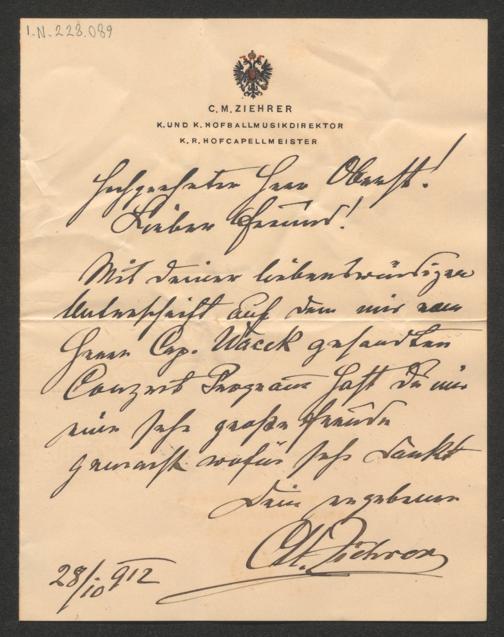 I.N. 228.089
C. M. ZIEHRER
K. UND K. HOFBALLMUSIKDIREKTOR
K. R. HOFCAPELLMEISTER
Hochgeehrter Herr Oberst!
Lieber Freund!
Mit deiner liebenswürdigen
Unterschrift auf dem mir vom
Herrn Cap. Wacek gesandten
Conzert Programm hast Du mir
eine sehr große Freude
gemacht wofür sehr dankt
Dein ergebener
CM. Ziehrer
28/10 912